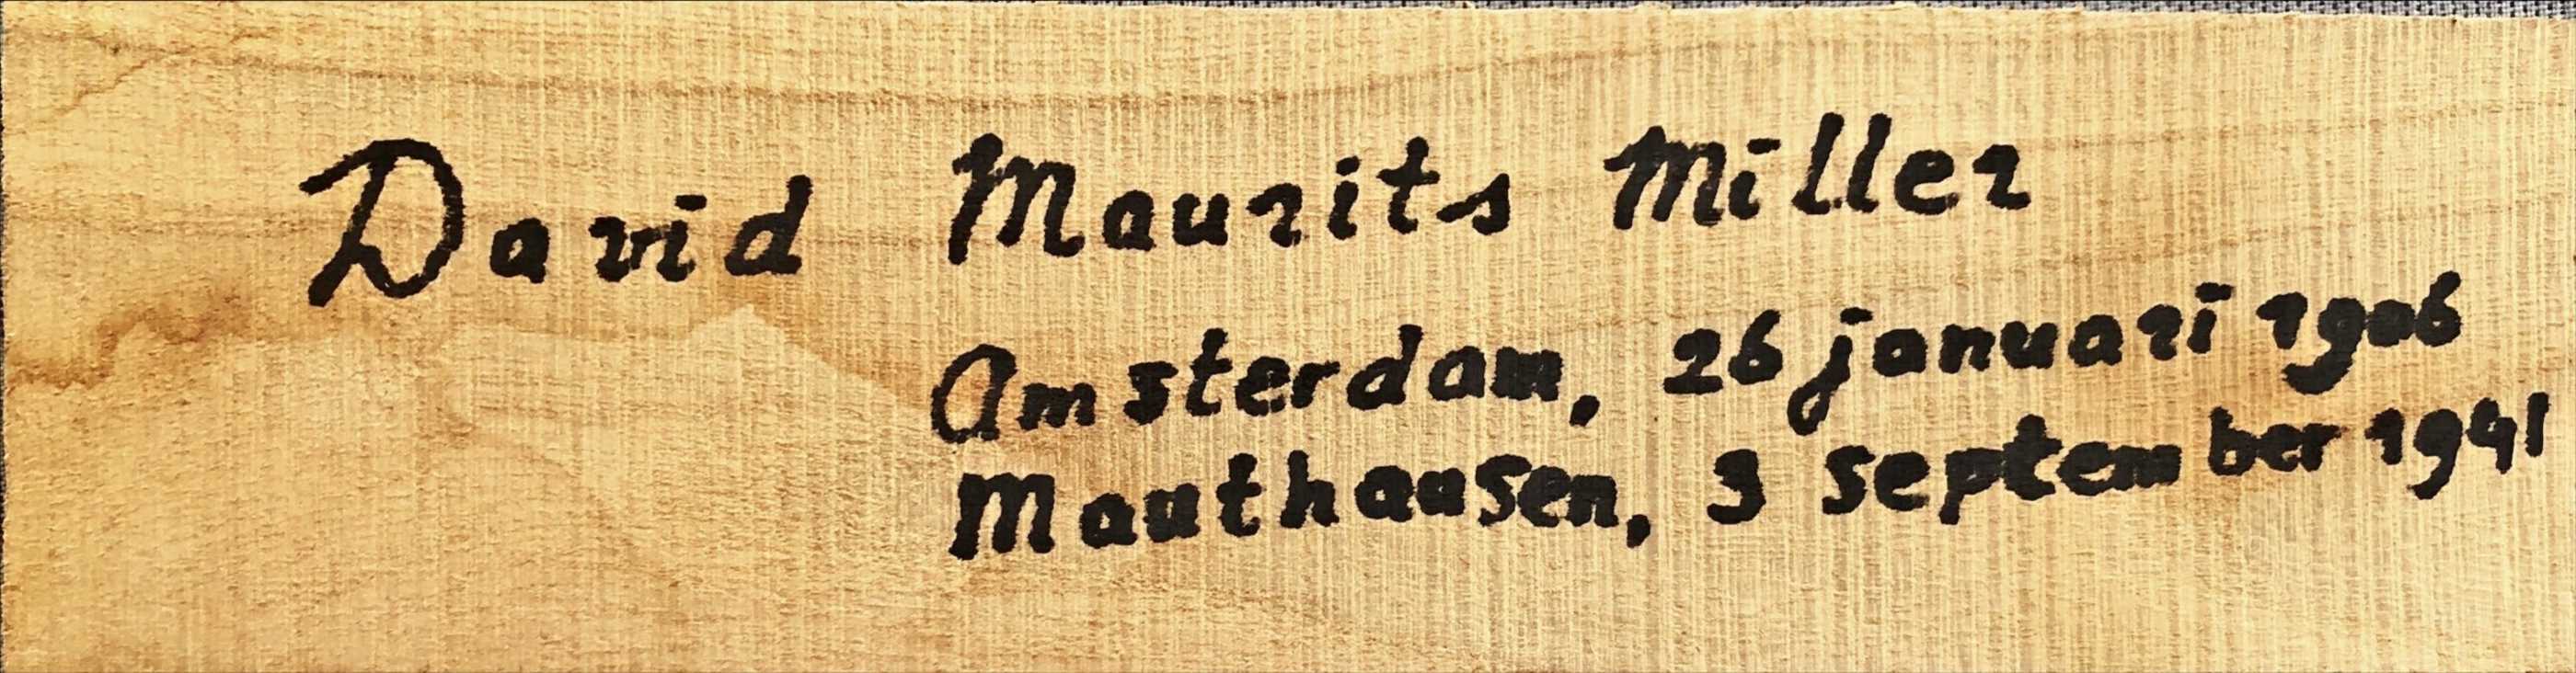 David Maurits Miller
Amsterdam, 26 januari 1906
Mauthausen, 3 september 1941